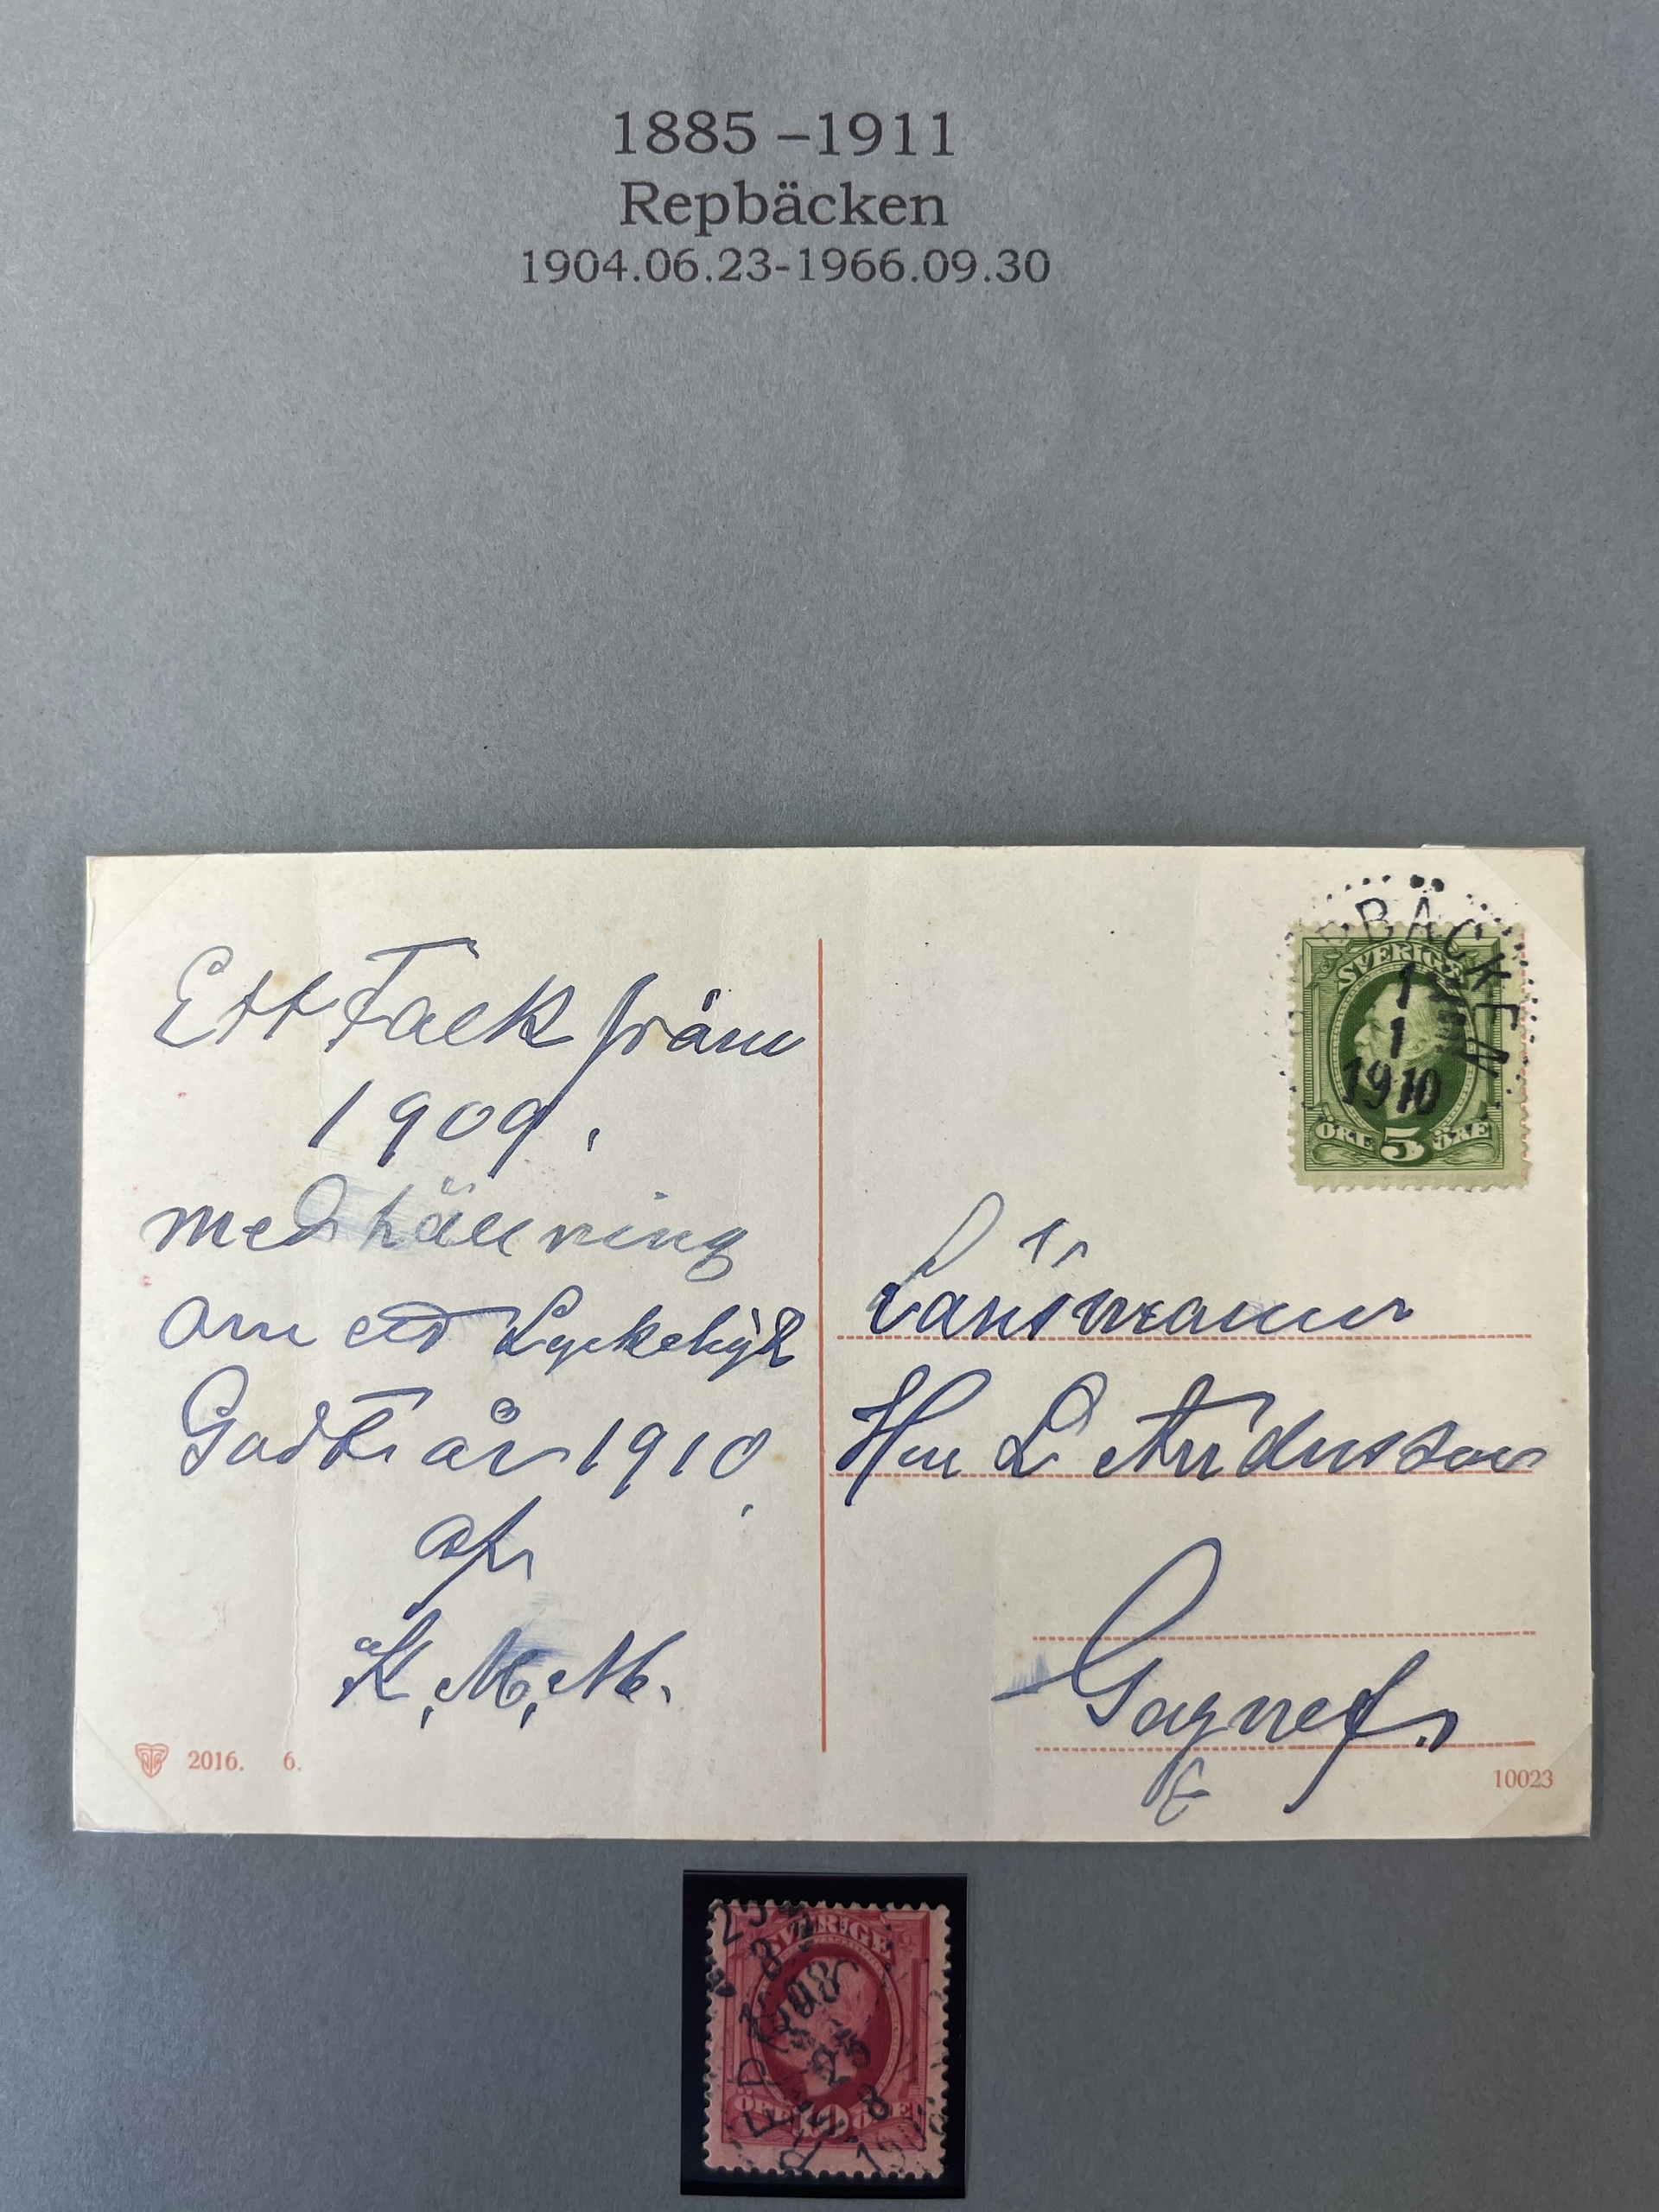 1885 –1911
Repbäcken
1904.06.23-1966.09.30
Ett Tack från
1909.
med hällning
om ett Lyckeligt
Godt år 1910
af
K. M. M.
2016. 6.
BÄCKEN
1
1
1910
SVERIGE
ÖRE 5 ÖRE
Länsmann
Herr L
Gagnef.
10023
SVERIGE
8
1908
REP
25
8
ÖRE 10 ÖRE